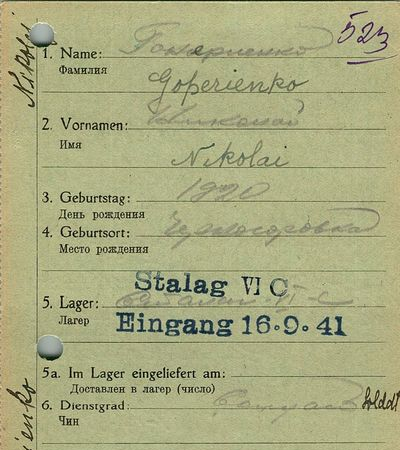 523
Nikolai
1. Name:
Фамилия
Goperienko
2. Vornamen: Николай
Имя
Nikolai
3. Geburtstag: 1920
День рождения
4. Geburtsort:
Место рождения
Stalag VI C
5. Lager: VI-C
Лагер
Eingang 16.9.41
5a. Im Lager eingeliefert am:
Доставлен в лагер (число)
6. Dienstgrad: Солдат Soldat
Чин
ienko